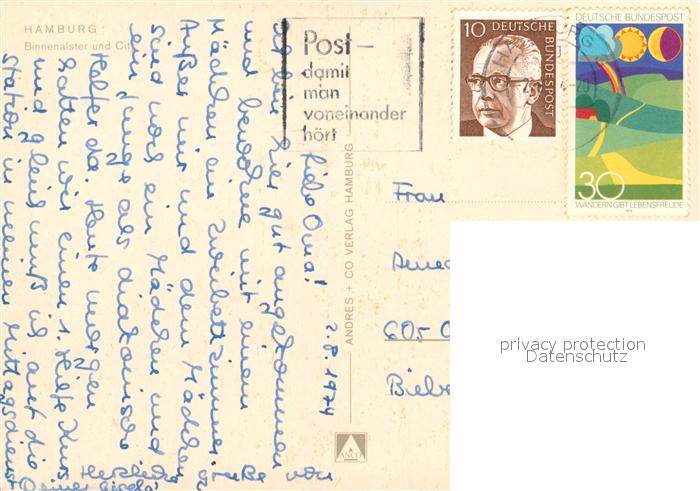 HAMBURG
Binnenalster und City
Post-
damit
man
voneinander
hört
10 DEUTSCHE BUNDESPOST
DEUTSCHE BUNDESPOST
30
WANDERN GIBT LEBENSFREUDE
ANDRES + CO VERLAG HAMBURG
ANCO
2.8.1974
Liebe Oma!
bin hier gut angekommen
und bewohne mit einem
Mädchen ein Zweibettzimmer.
Außer mir und dem Mädchen
sind noch ein Mädchen und
ein Junge als diakonische
Helfer da. Heute morgen
hatten wir einen 1. Hilfe Kurs
und gleich muß ich auf die
Station in meinen Mittagsdienst.
Herzliche Grüße von
Deiner Gisela
Frau
605 O
Biebe
privacy protection
Datenschutz